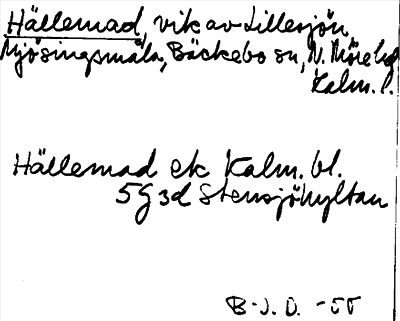 Hällemad, vik av Lillesjön
Mjösingsmåla, Bäckebo sn, N. Möre hd
Kalm. l.
Hällemad ek Kalm. bl.
5G 3d Stensjöhyltan
B-J. O. -55